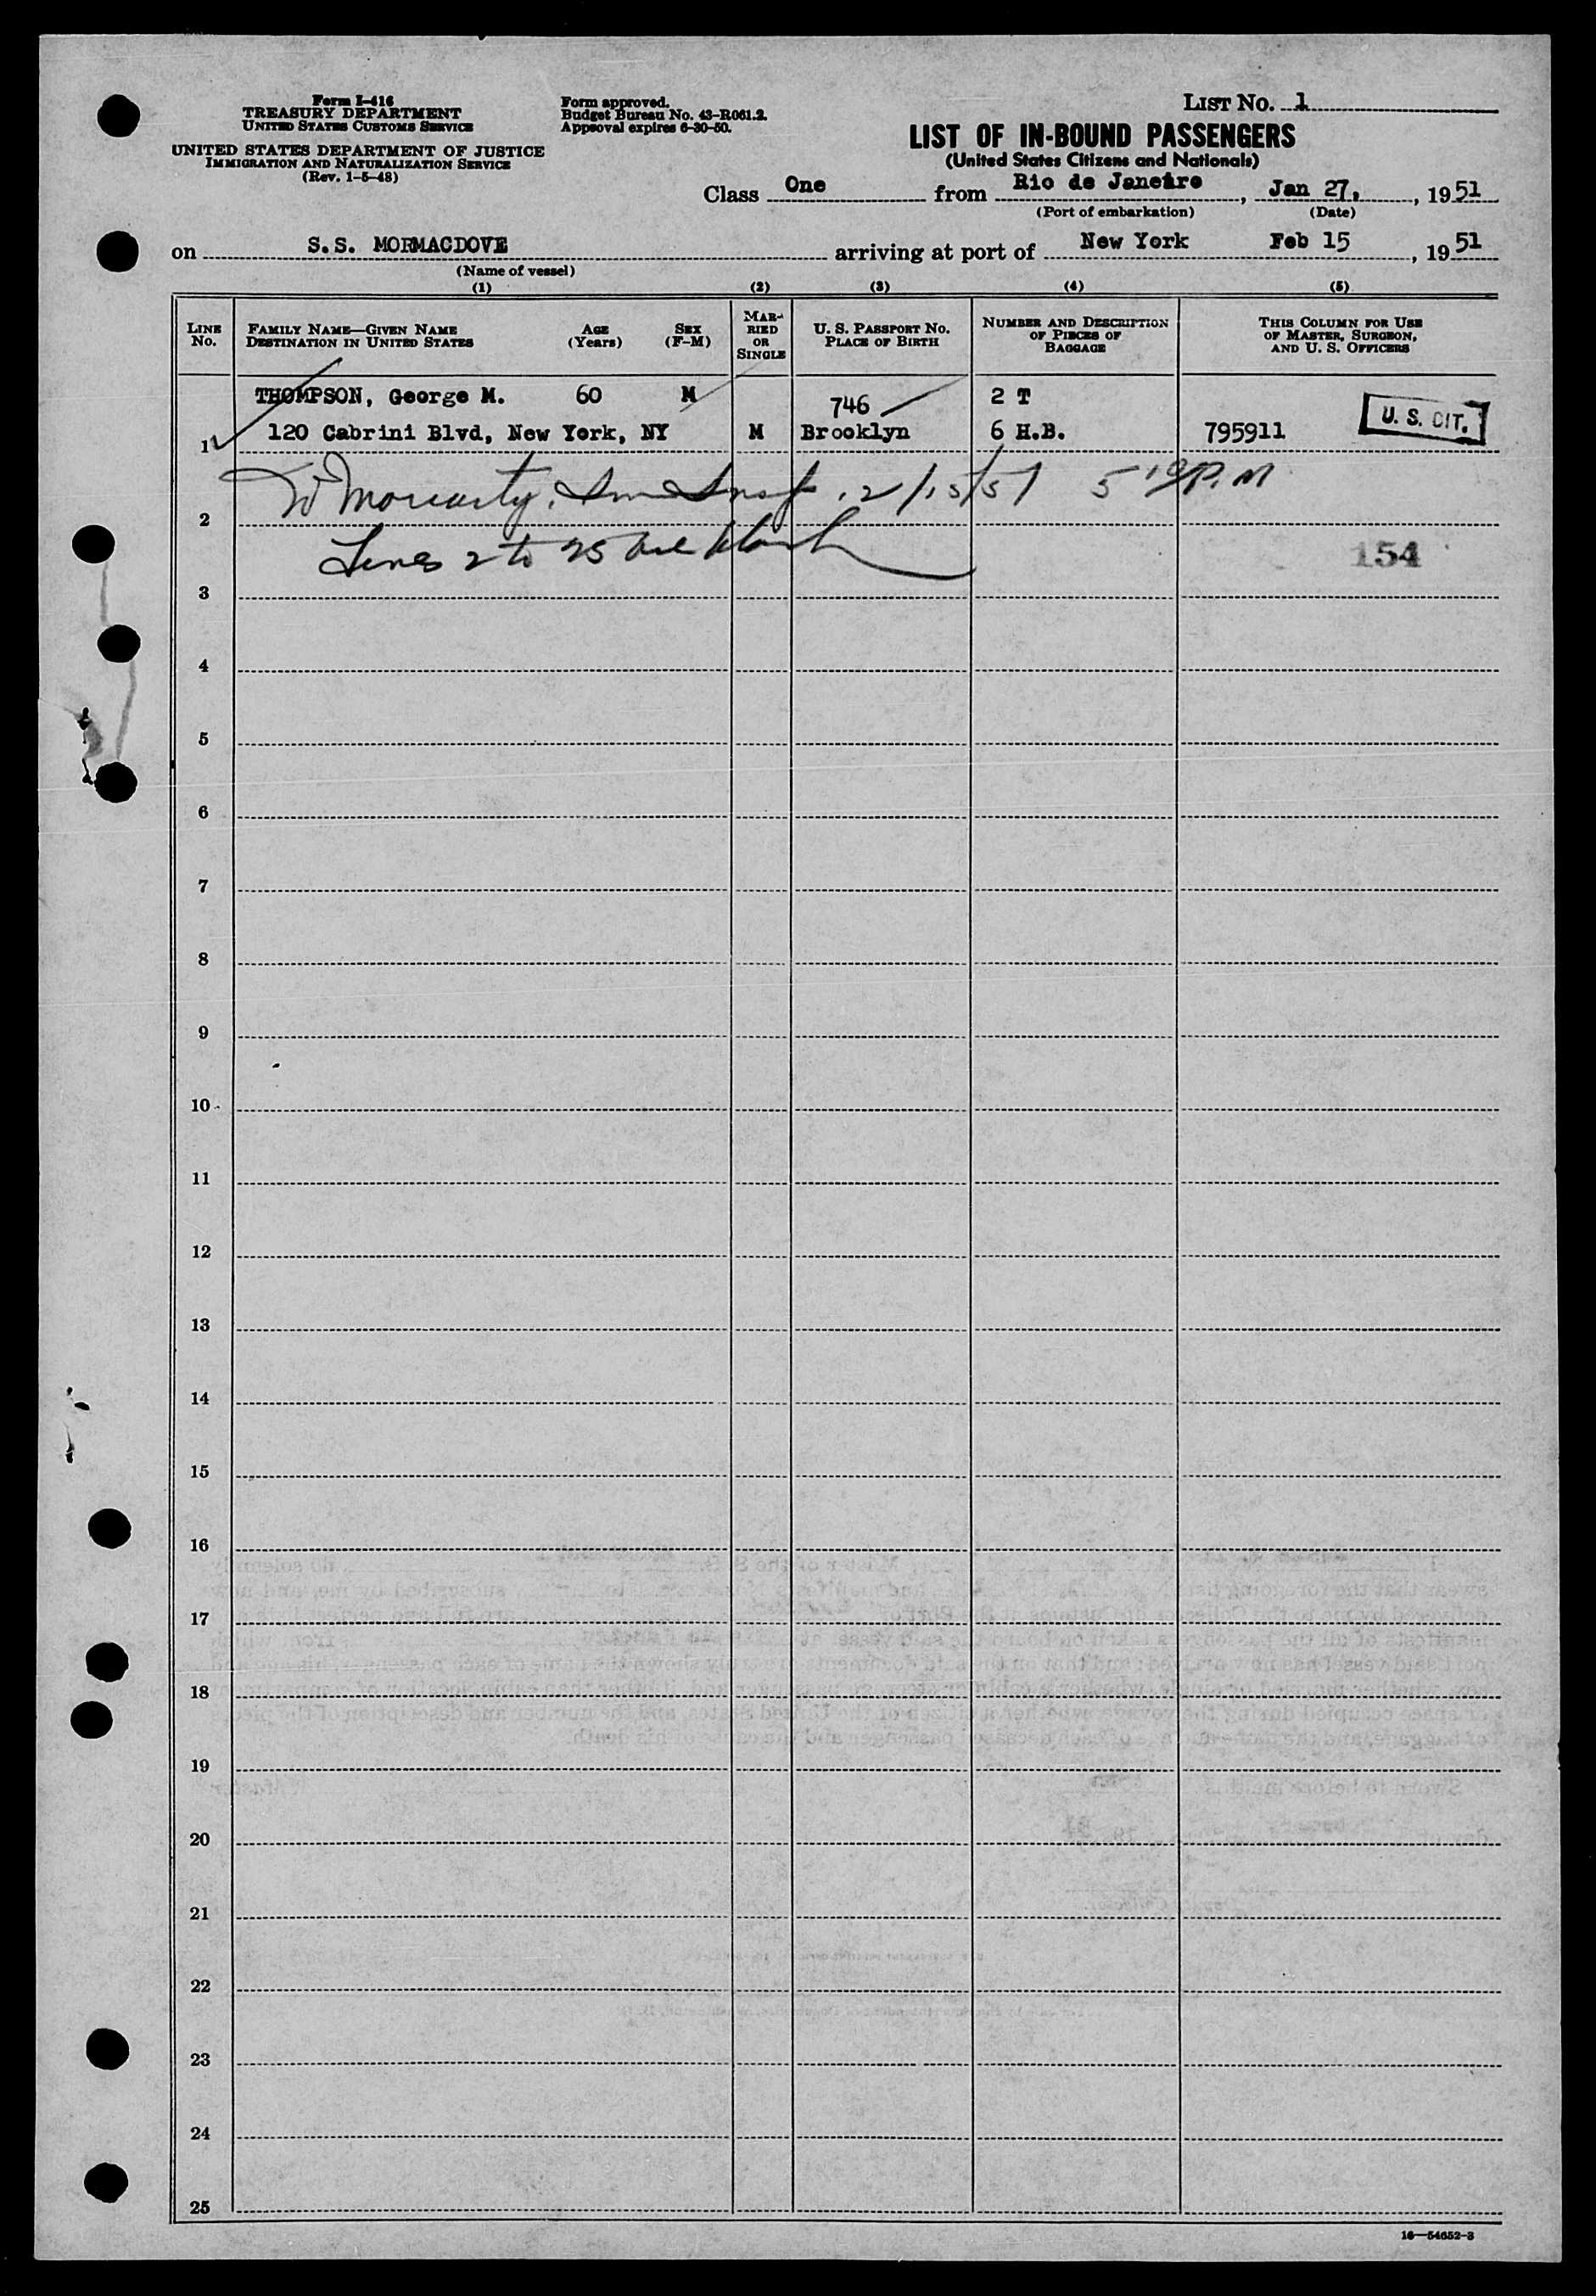 Form I-416
TREASURY DEPARTMENT
UNITED STATES CUSTOMS SERVICE
UNITED STATES DEPARTMENT OF JUSTICE
IMMIGRATION AND NATURALIZATION SERVICE
(Rev. 1-5-48)
Form approved.
Budget Bureau No. 43-R061.2.
Approval expires 6-30-50.
LIST NO. 1
LIST OF IN-BOUND PASSENGERS
(United States Citizens and Nationals)
Class One from Rio de Janeiro, Jan 27, , 1951
(Port of embarkation) (Date)
on S.S. MORMACDOVE arriving at port of New York Feb 15, 1951
(Name of vessel)
(1) (2) (3) (4) (5)
LINE NO. FAMILY NAME—GIVEN NAME DESTINATION IN UNITED STATES AGE (Years) SEX (F-M) MARRIED OR SINGLE U. S. PASSPORT NO. PLACE OF BIRTH NUMBER AND DESCRIPTION OF PIECES OF BAGGAGE THIS COLUMN FOR USE OF MASTER, SURGEON, AND U. S. OFFICERS
THOMPSON, George M. 60 M 746 2 T
1 120 Cabrini Blvd, New York, NY M Brooklyn 6 H.B. 795911 U. S. CIT.
W Moriarty, Imm Insp. 2/15/51 5 10 P.M
2
Lines 2 to 25 are blank
154
3
4
5
6
7
8
9
10
11
12
13
14
15
16
17
18
19
20
21
22
23
24
25
16—54652-3